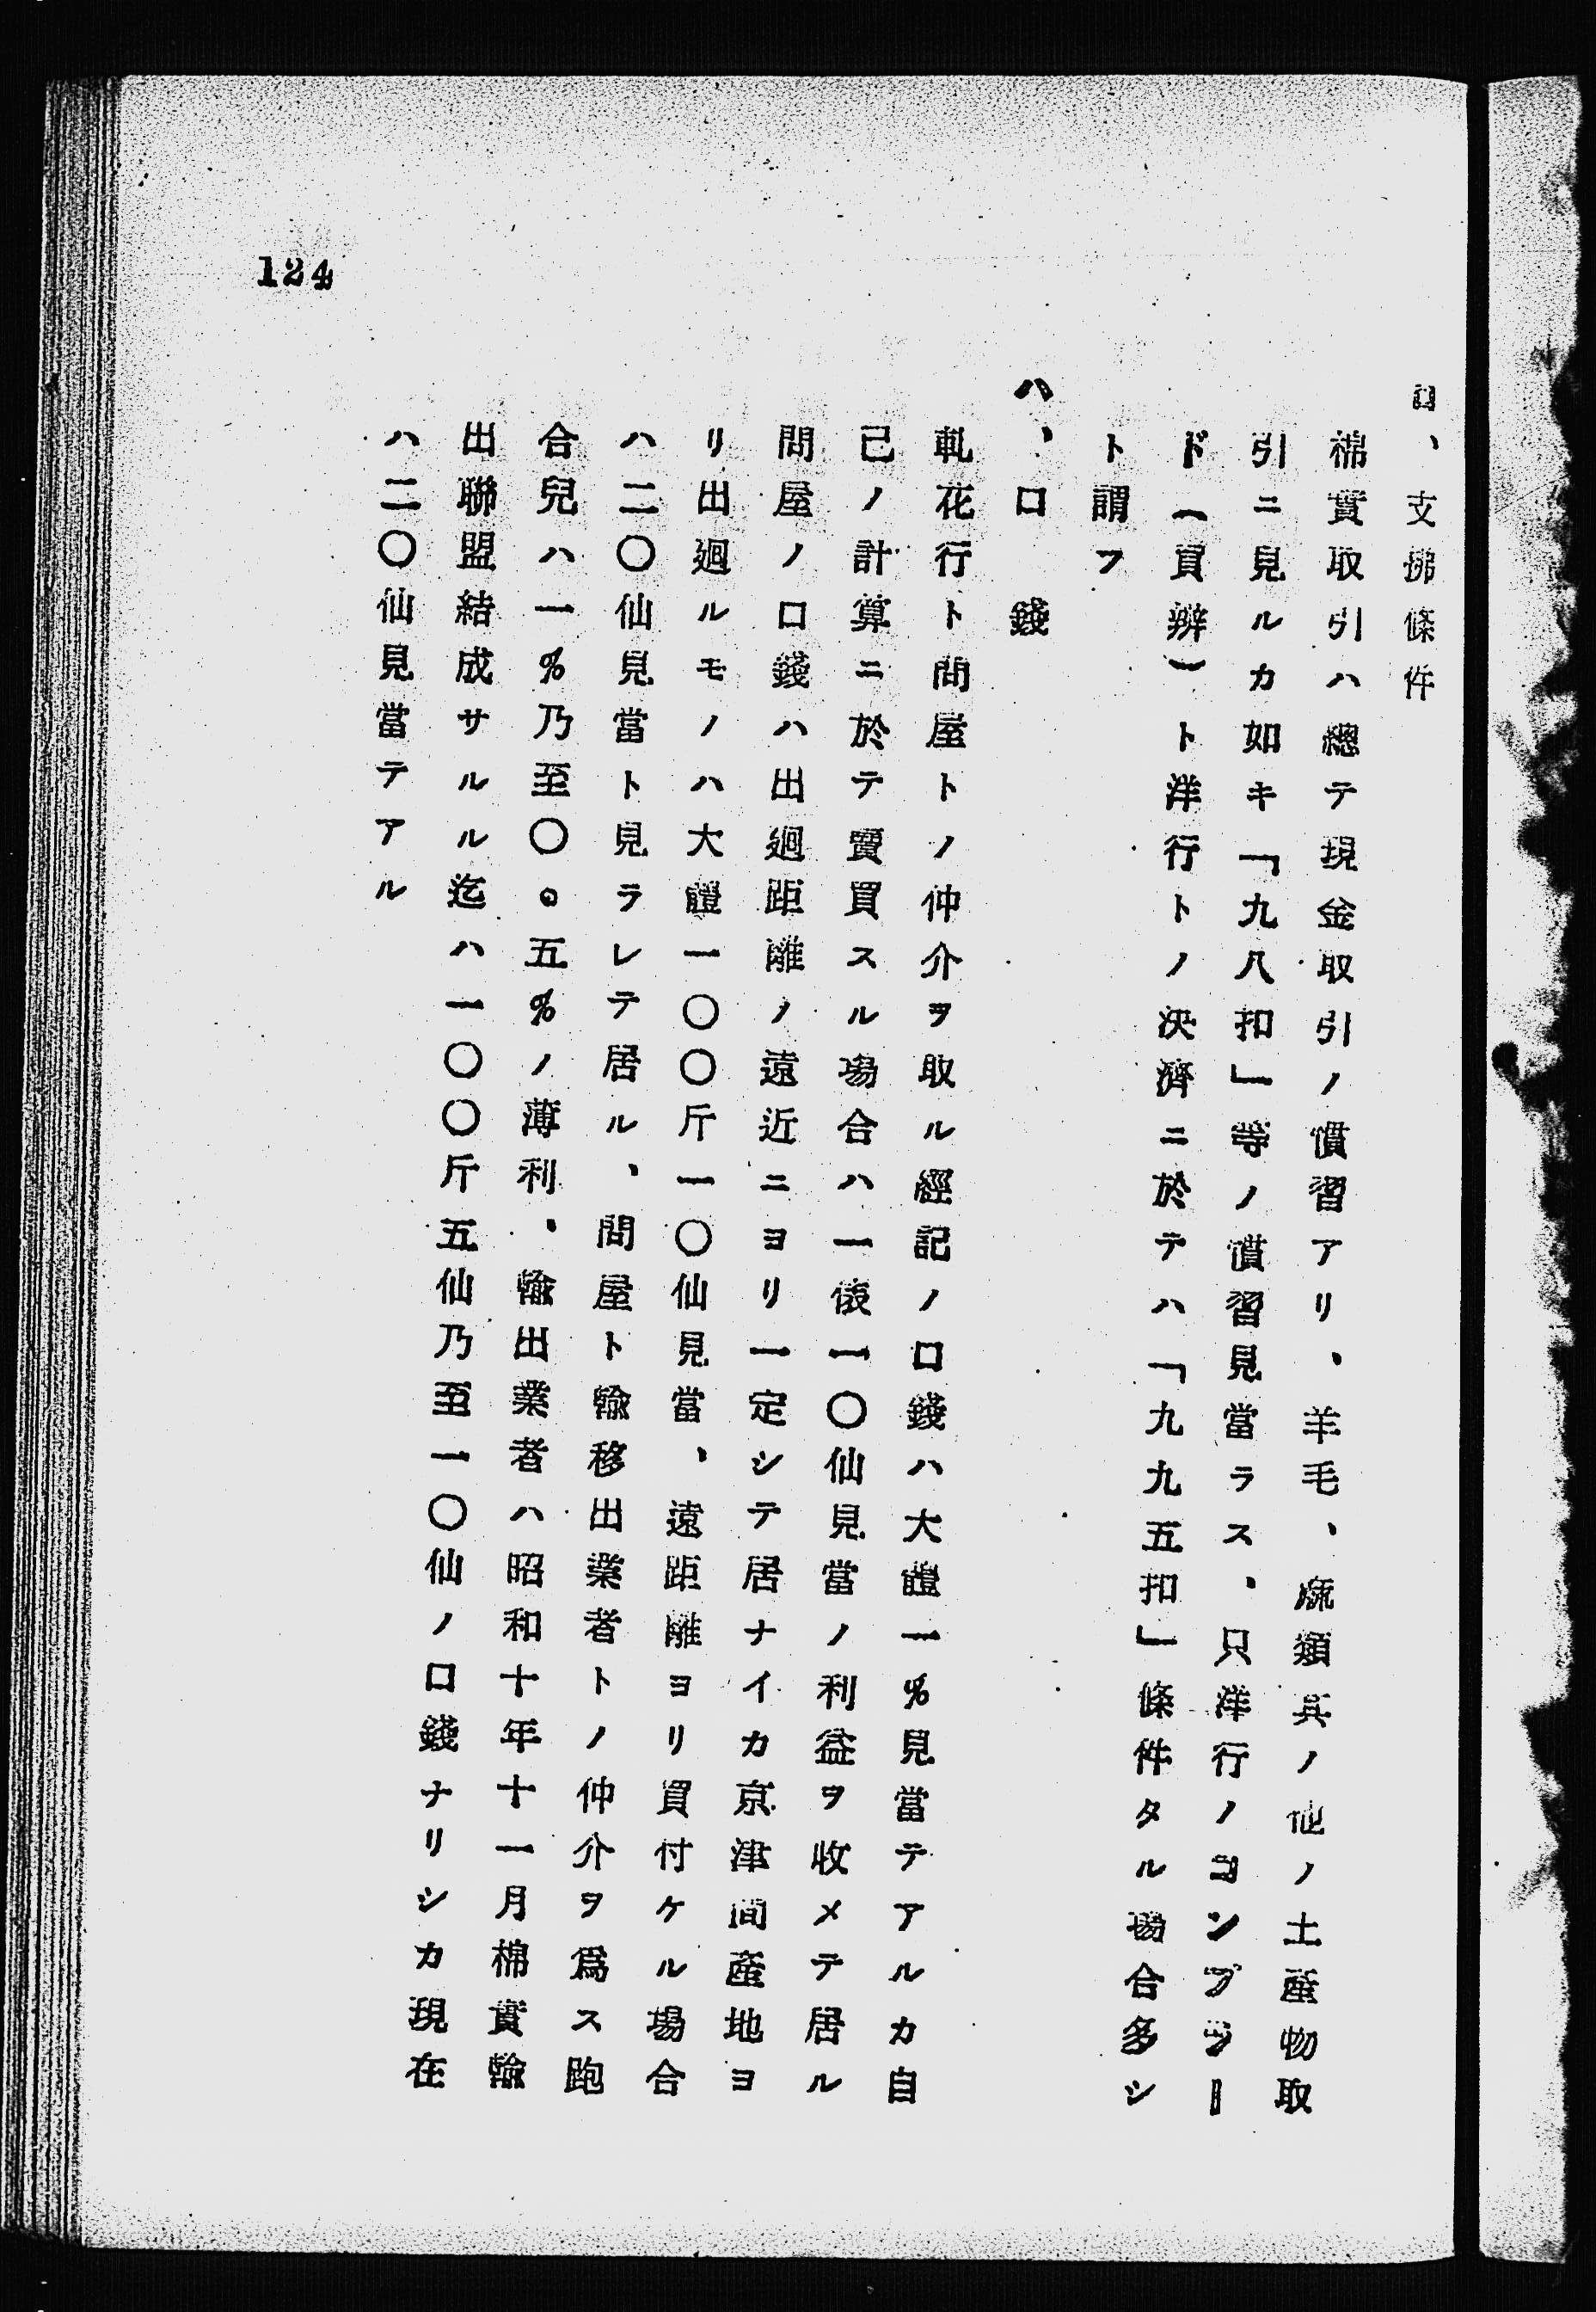 ロ、支拂條件
棉實取引ハ總テ現金取引ノ慣習アリ、羊毛、麻類其ノ他ノ土產物取
引ニ見ルカ如キ「九八扣」等ノ慣習見當ラス、只洋行ノコンプラー
ド(買辨)ト洋行トノ決濟ニ於テハ「九九五扣」條件タル場合多シ
ト謂フ
ハ、口錢
軋花行ト問屋トノ仲介ヲ取ル經記ノ口錢ハ大體一%見當テアルカ自
己ノ計算ニ於テ賣買スル場合ハ一俵一〇仙見當ノ利益ヲ收メテ居ル
問屋ノ口錢ハ出廻距離ノ遠近ニヨリ一定シテ居ナイカ京津間產地ヨ
リ出廻ルモノハ大體一〇〇斤一〇仙見當、遠距離ヨリ買付ケル場合
ハ二〇仙見當ト見ラレテ居ル、問屋ト輸移出業者トノ仲介ヲ爲ス跑
合兒ハ一%乃至〇。五%ノ薄利、輸出業者ハ昭和十年十一月棉實輸
出聯盟結成サルル迄ハ一〇〇斤五仙乃至一〇仙ノ口錢ナリシカ現在
ハ二〇仙見當テアル
124